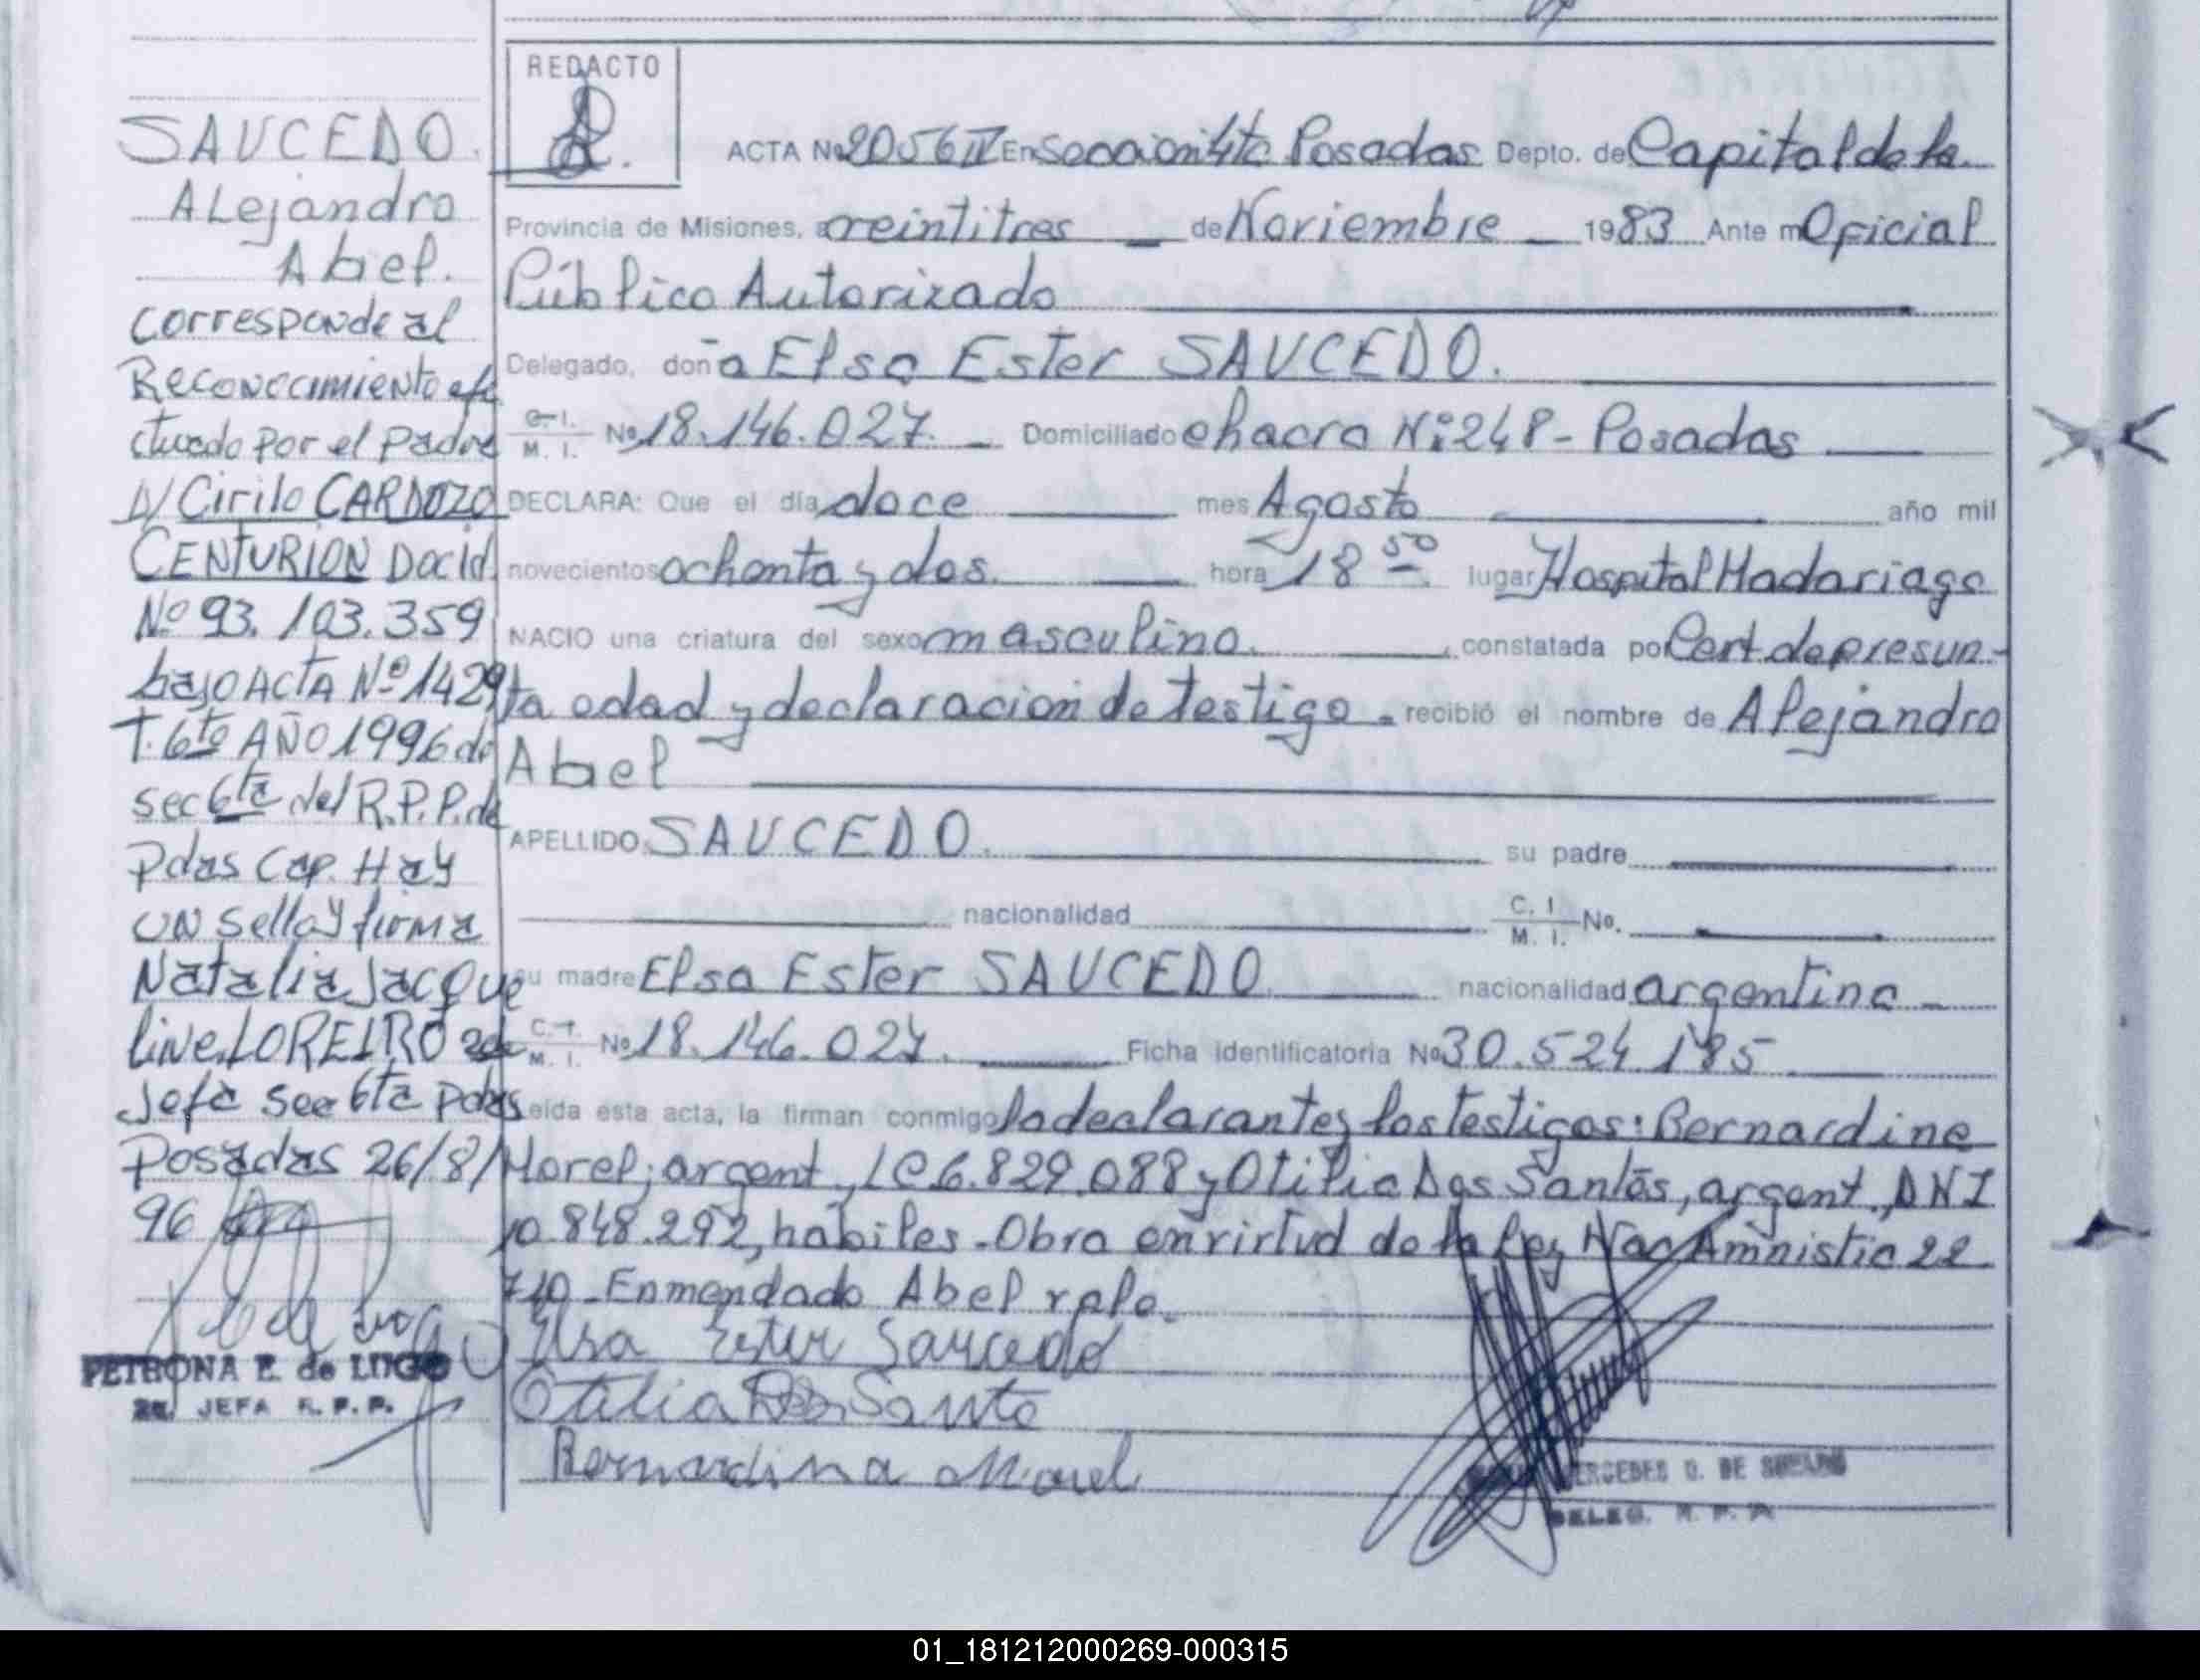 SAUCEDO.
Alejandro
Abel.
Corresponde al
Reconocimiento efe
ctuado por el padre
D/ Cirilo CARDOZO
CENTURION Doc id.
Nº 93.103.359
bajo ACTA Nº 1429
T. 6to AÑO 1996 de
sec 6ta del R.P.P. de
Pdas Cap. Hay
UN sello y firma
Natalia Jacque
line LOREIRO 2da
Jefa Sec 6ta Pdas
Posadas 26/8/
96
PETRONA E. de LUGO
2da. JEFA R. P. P.
REDACTO
ACTA Nº 2056 IV En Sección 4ta Posadas Depto. de Capital de la
Provincia de Misiones, a veintitres de Noviembre 1983 Ante mí Oficial
Público Autorizado
Delegado, doña Elsa Ester SAUCEDO.
C. I. M. I. Nº 18.146.027. Domiciliado chacra Nº 248 - Posadas
DECLARA: Que el día doce mes Agosto año mil
novecientos ochenta y dos. hora 18 50 lugar Hospital Madariaga
NACIO una criatura del sexo masculino. constatada por Cert. de presun-
ta edad y declaracion de testigo. recibió el nombre de Alejandro
Abel
APELLIDO SAUCEDO. su padre
nacionalidad C. I M. I. No.
su madre Elsa Ester SAUCEDO. nacionalidad argentina
C. I. M. I. Nº 18.146.027. Ficha identificatoria Nº 30.524.185
Leída esta acta, la firman conmigo la declarante y los testigos: Bernardina
Morel, argent., LC 6.829.088 y Otilia Dos Santos, argent., DNI
10.848.292, habiles. Obra en virtud de la Ley Nac Amnistia 22
710 - Enmendado Abel vale.
Elsa Ester Saucedo
Otalia Dos Santo
Bernardina Morel
MERCEDES O. DE
DELEG. R. P. P.
01_181212000269-000315